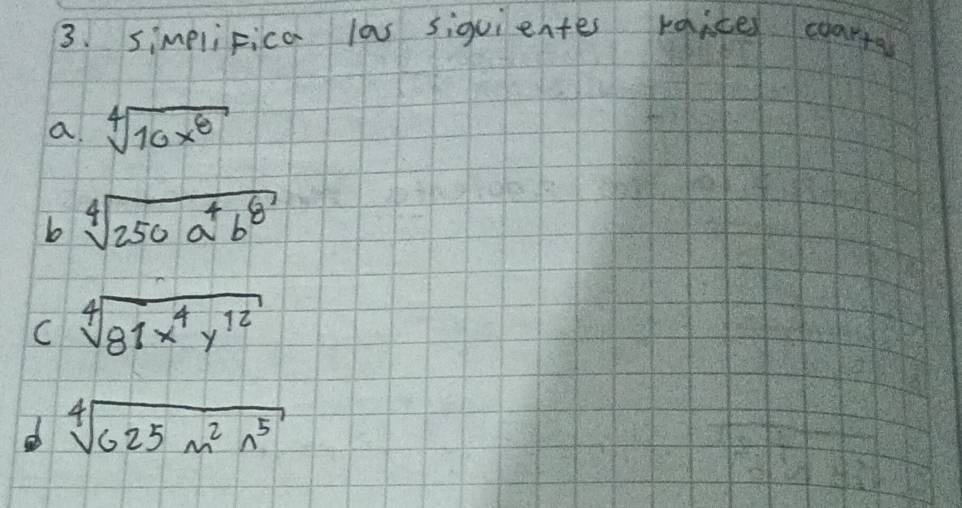 3. simplifica las siguientes raices cuartas
a. ∜16x⁸
b ∜256 a⁴b⁸
c ∜81x⁴y¹²
d ∜625 m² n⁵